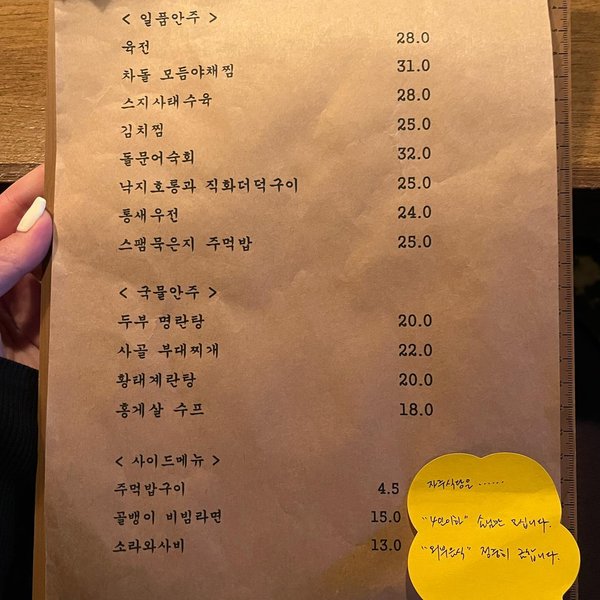 < 일품안주 >
육전 28.0
차돌 모듬야채찜 31.0
스지사태수육 28.0
김치찜 25.0
돌문어숙회 32.0
낙지호롱과 직화더덕구이 25.0
통새우전 24.0
스팸묵은지 주먹밥 25.0
< 국물안주 >
두부 명란탕 20.0
사골 부대찌개 22.0
황태계란탕 20.0
홍게살 수프 18.0
< 사이드메뉴 >
주먹밥구이 4.5
골뱅이 비빔라면 15.0
소라와사비 13.0
"4인이하" 손님만 모십니다.
"외부음식" 정중히 금합니다.